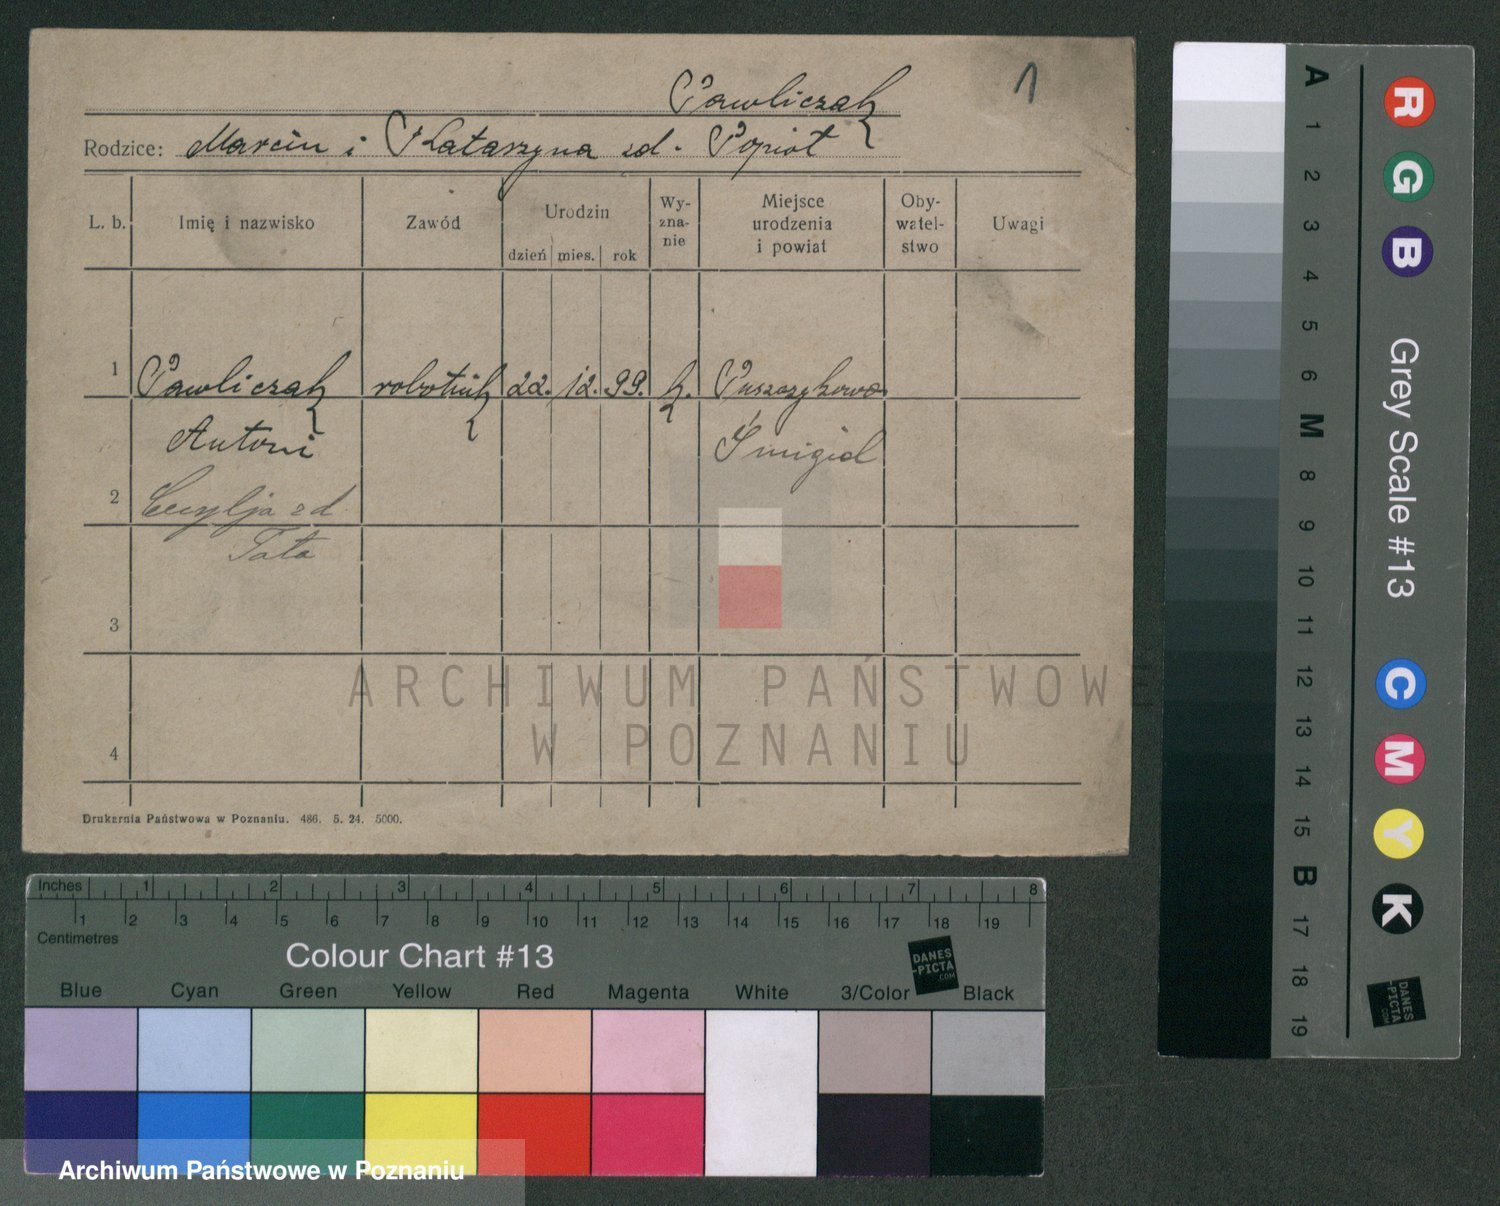 Pawliczak
1
Rodzice: Marcin i Katarzyna zd. Popiot
L. b. Imię i nazwisko Zawód Urodzin Wy-zna-nie Miejsce urodzenia i powiat Oby-watel-stwo Uwagi
dzień mies. rok
1 Pawliczak robotnik 22. 12. 99. k. Puszczykowo
Antoni Śmigiel
2 Cecylja zd
Tata
3
4
Drukarnia Państwowa w Poznaniu. 486. 5. 24. 5000.
ARCHIWUM PAŃSTWOWE
W POZNANIU
Inches 1 2 3 4 5 6 7 8
1 2 3 4 5 6 7 8 9 10 11 12 13 14 15 16 17 18 19
Centimetres
Colour Chart #13
DANES
-PICTA
.COM
Blue Cyan Green Yellow Red Magenta White 3/Color Black
Archiwum Państwowe w Poznaniu
A 1 2 3 4 5 6 M 8 9 10 11 12 13 14 15 B 17 18 19
R G B Grey Scale #13 C M Y K
DANES
-PICTA
.COM